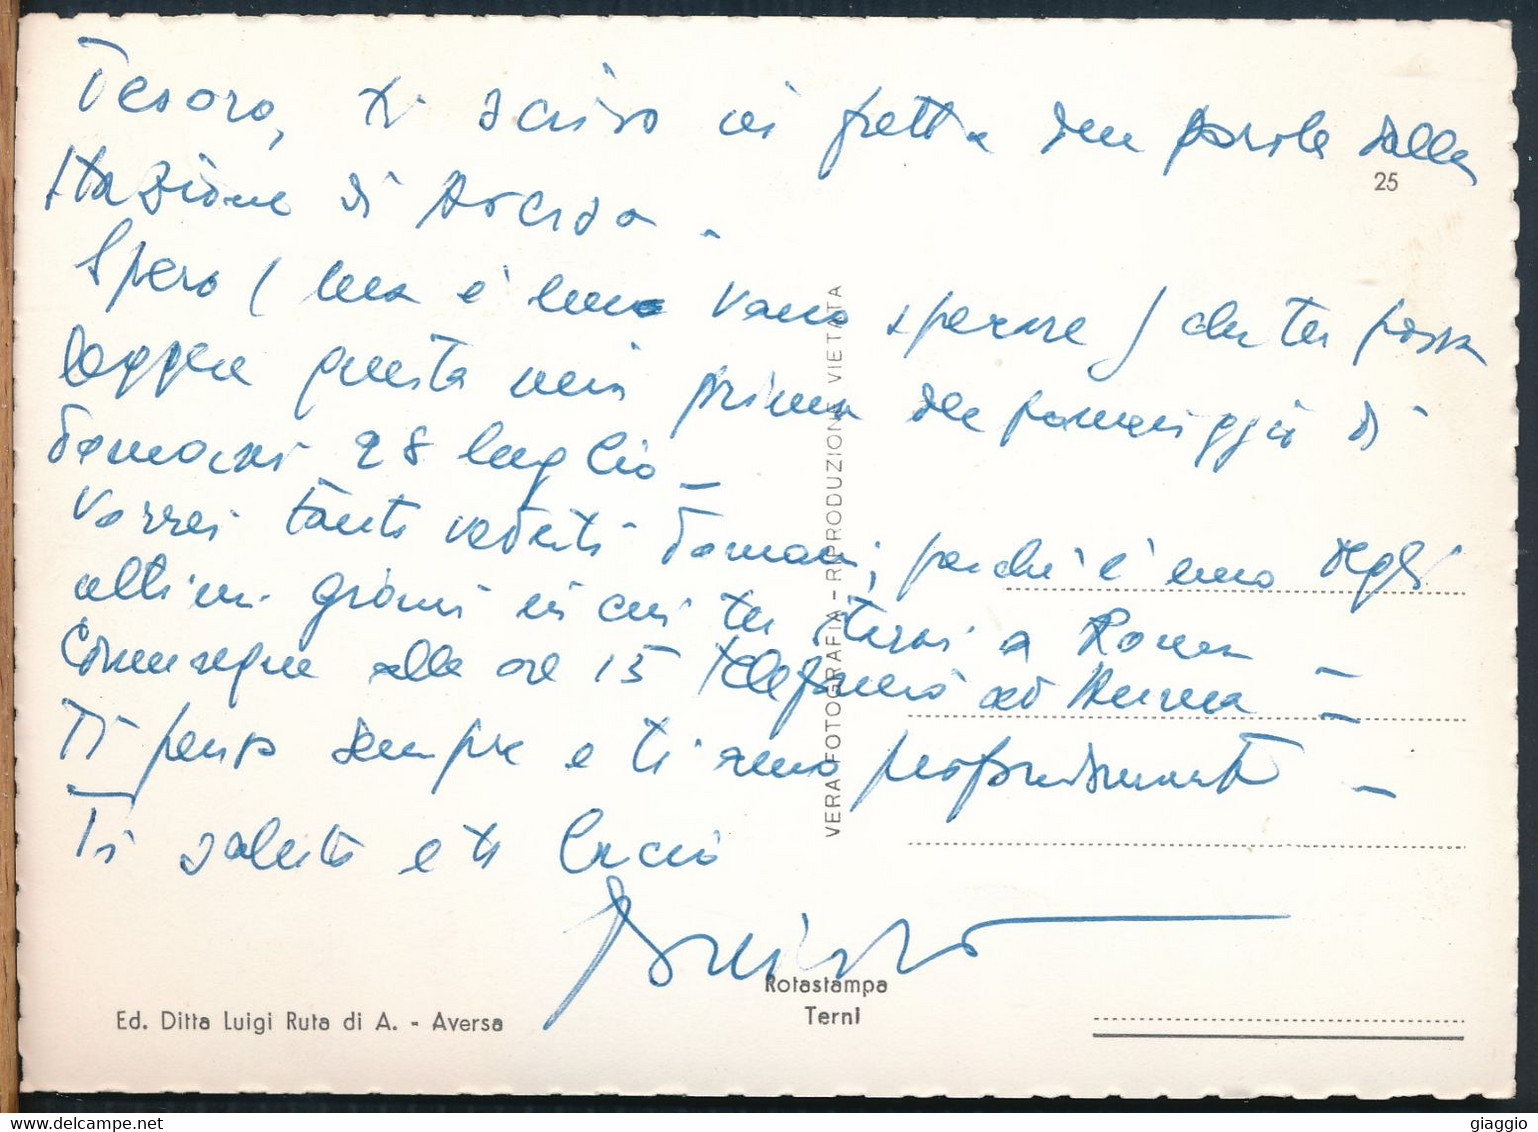 Tesoro, ti scrivo in fretta due parole dalla
stazione di Aversa.
Spero (ma è uno vano sperare) che tu possa
leggere questa mia prima del pomeriggio di
domani 28 luglio –
Vorrei tanto vederti domani, perché è uno degli
ultimi giorni in cui tu starai a Roma –
Comunque alle ore 15 telefonerò ad
Ti penso sempre e ti amo profondamente –
Ti saluto e ti bacio
25
VERA FOTOGRAFIA - RIPRODUZIONE VIETATA
Rotastampa
Terni
Ed. Ditta Luigi Ruta di A. - Aversa
delcampe.net
giaggio